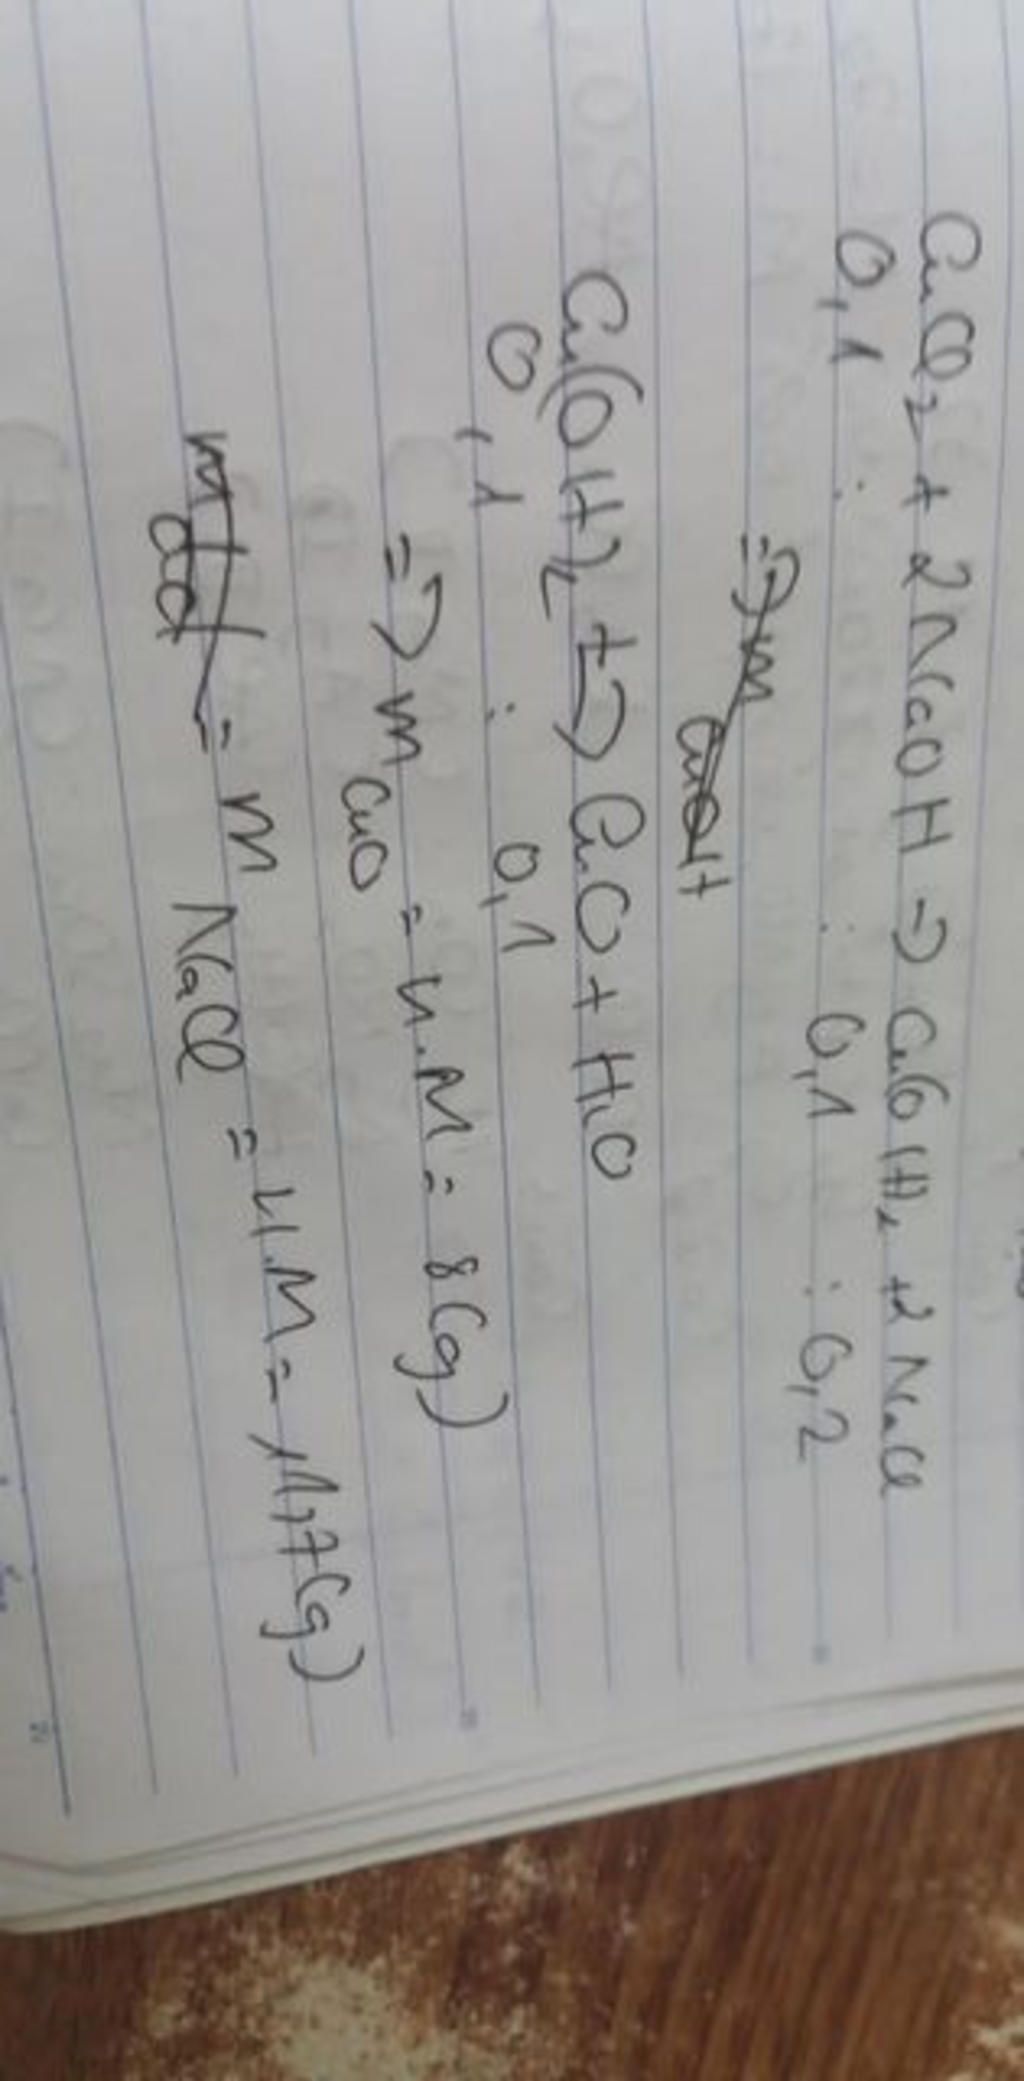 CuCl2 + 2NaOH => Cu(OH)2 + 2NaCl
0,1 : : 0,1 : 0,2
=> m CuOH
Cu(OH)2 t=> CuO + H2O
0,1 : 0,1
=> m CuO = n.M = 8(g)
= m NaCl = n.M = 11,7(g)